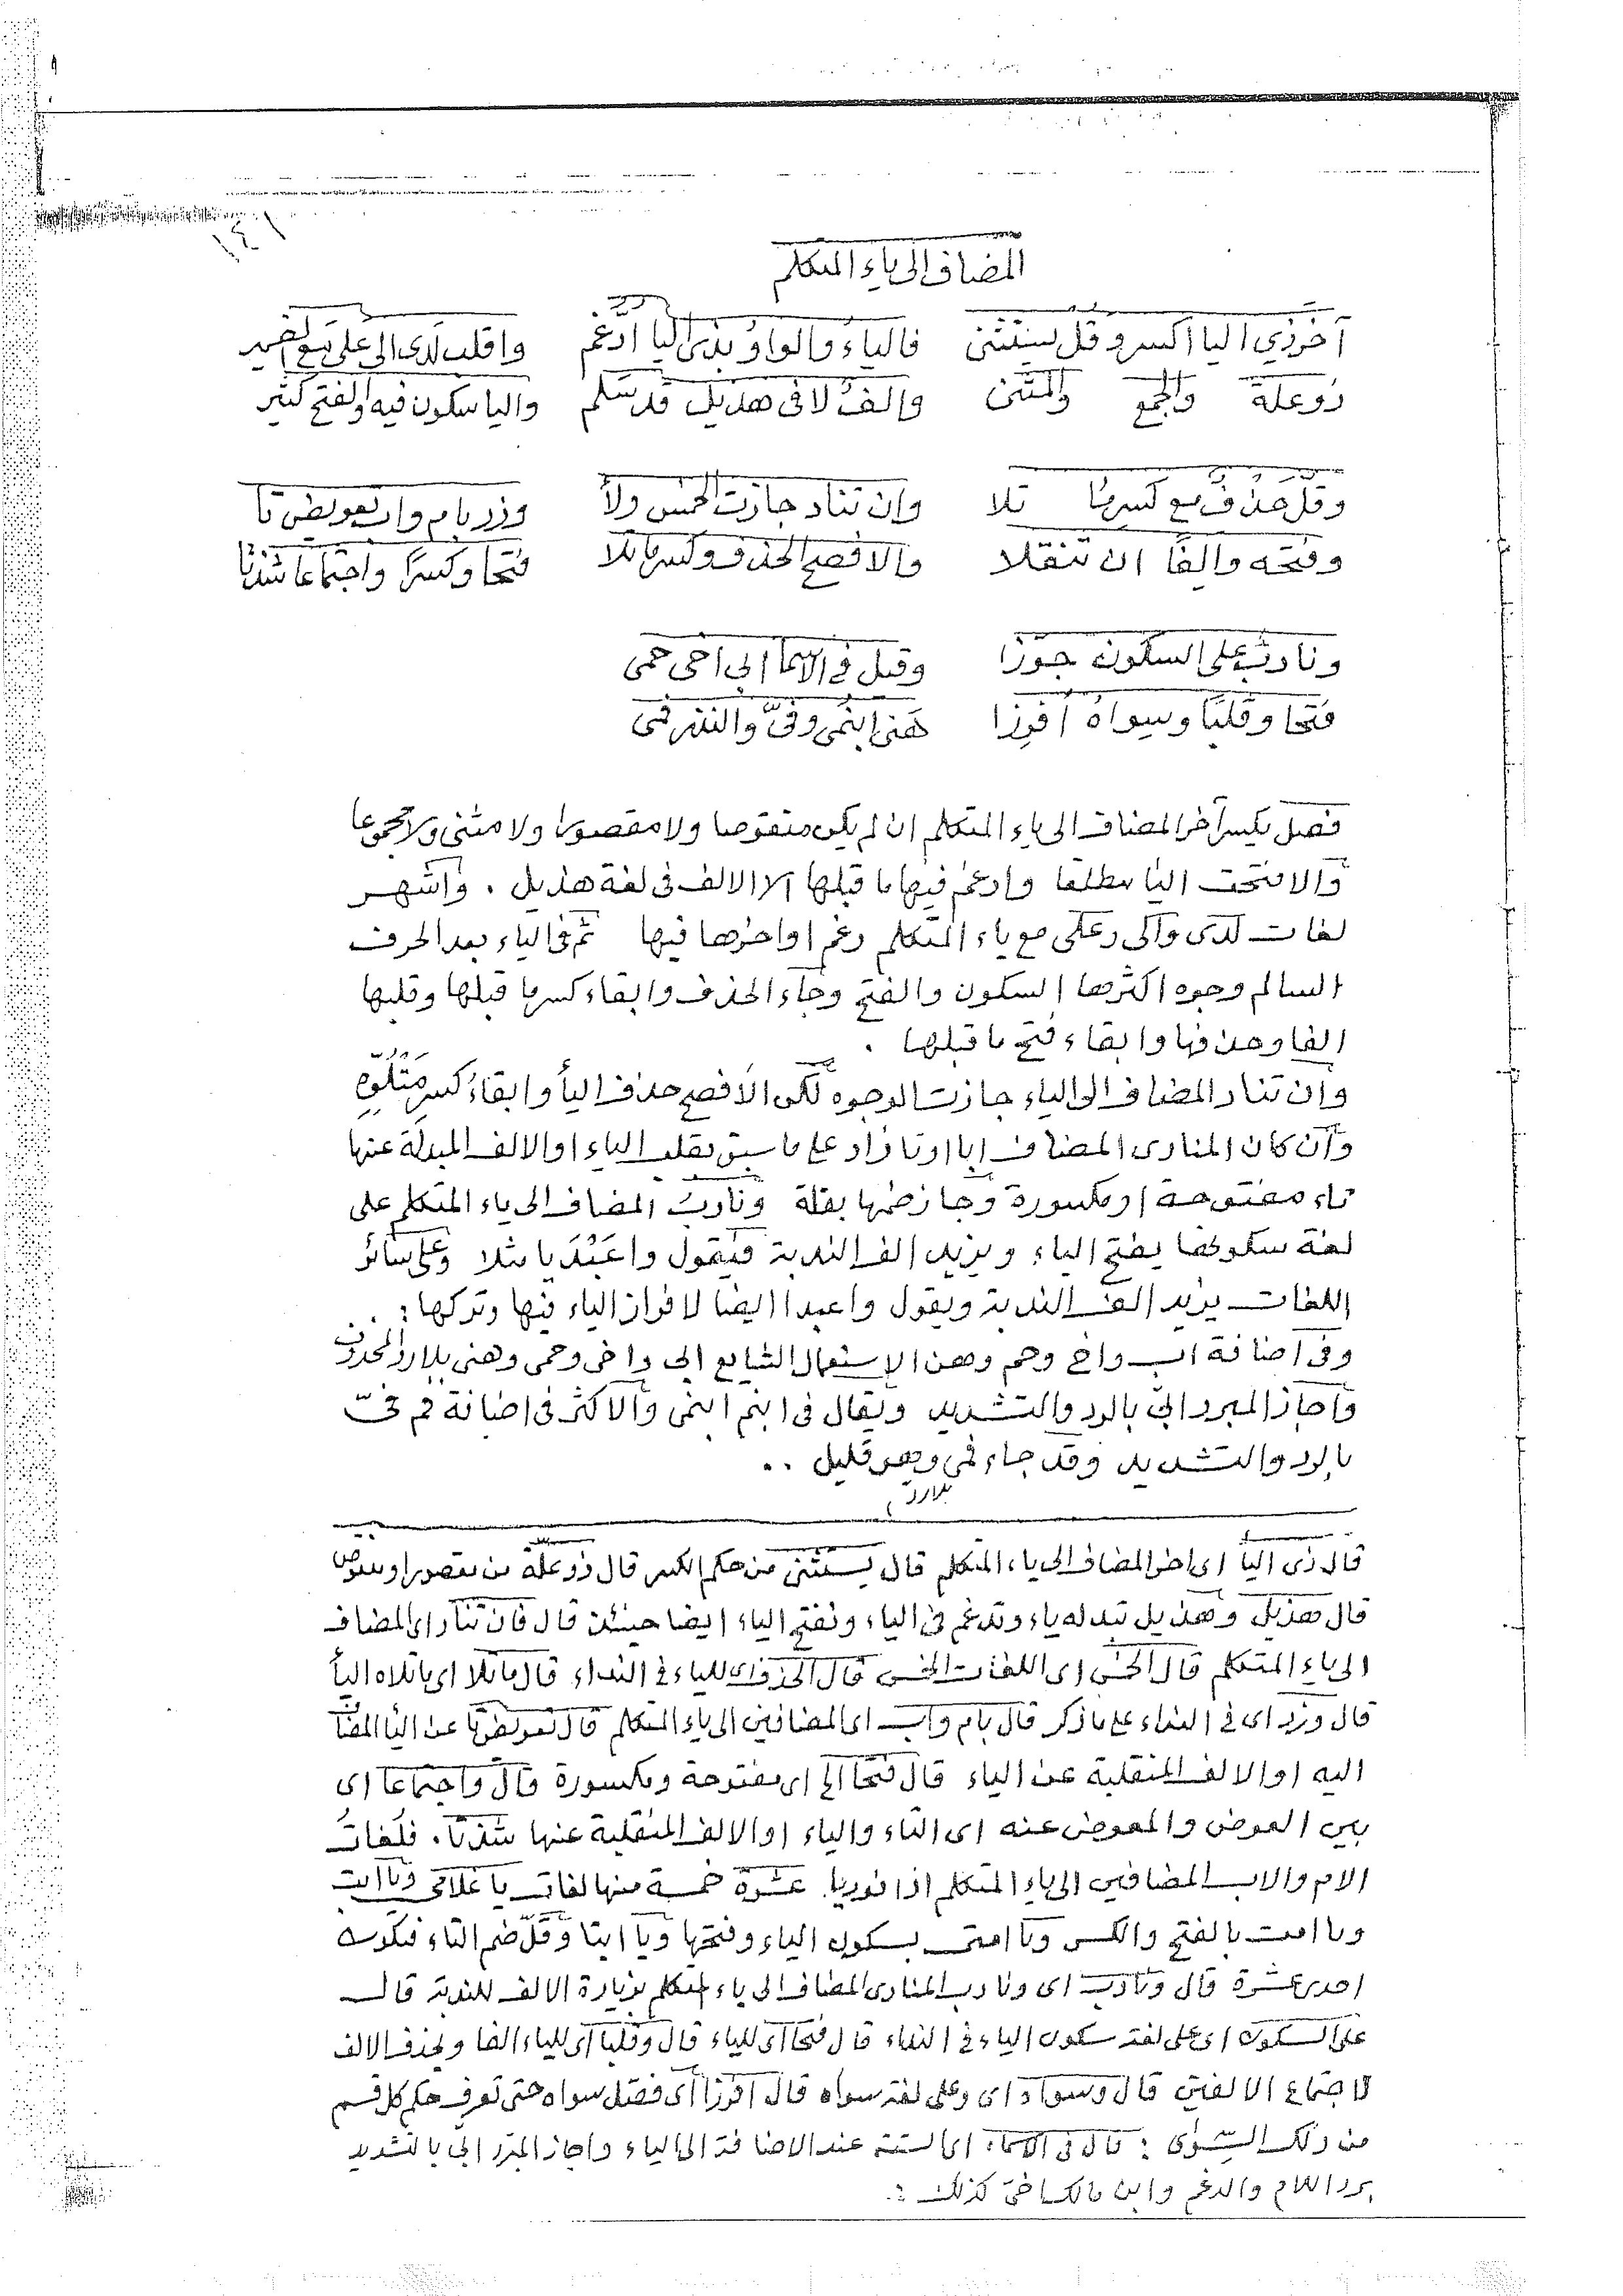 ١٤١
المضاف الى ياء المتكلم
آخر ذي اليا اكسر وقل يستثنى فالياء والواو بذي اليا ادغم واقلب لدى الى على مع الضمير
ذو علة والجمع والمثنى والف لا في هذيل قد سلم واليا سكون فيه والفتح كثير
وقل حذف مع كسر ما تلا وان تناد جازت الخمس ولا وزد بام واب تعويض تا
وفتحه والفا ان تنقلا والافصح الحذف وكسر ما تلا فتحا وكسرا واجتماعا شذتا
ونادب على السكون جوزا وقيل في الاسما ابي اخي حمي
فتحا وقلبا وسواه افرزا هني ابنمي وفيّ والنثر فمي
فصل يكسر آخر المضاف الى ياء المتكلم ان لم يكن منقوصا ولا مقصورا ولا مثنى ولا مجموعا
والا فتحت اليا مطلقا وادغم فيها ما قبلها الا الالف في لغة هذيل . واشهر
لغات لدى والى وعلى مع ياء المتكلم دغم اواخرها فيها ثم في الياء بعد الحرف
السالم وجوه اكثرها السكون والفتح وجاء الحذف وابقاء كسر ما قبلها وقلبها
الفا وحذفها وابقاء فتح ما قبلها .
وان تناد المضاف الى الياء جازت الوجوه لكن الافصح حذف اليأ وابقاء كسر متلوه
وان كان المنادى المضاف ابا او تا زاد على ما سبق بقلب الياء او الالف المبدلة عنها
تاء مفتوحة او مكسورة وجاز ضمها بقلة ونادب المضاف الى ياء المتكلم على
لغة سكونها يفتح الياء ويزيد الف الندبة فيقول واعَبْدَيا مثلا وعلى سائر
اللغات يزيد الف الندبة ويقول واعبدا ايضا لا فراز الياء فيها وتركها :
وفي اضافة اب واخ وحم وهن الاستعمال الشايع ابي واخي وحمي وهني بلا رد المحذوف
واجاز المبرد ابيّ بالرد والتشديد ويقال في ابنم ابنمي والاكثر في اضافة فم فيّ
بالرد والتشديد وقد جاء فمي وهو قليل ..
بلا رد
قال ذى اليأ اى اخر المضاف الى ياء المتكلم قال يستثنى من حكم الكسر قال ذو علة من مقصور او منقوص
قال هذيل وهذيل تبدله ياء وتدغم في الياء وتفتح الياء ايضا حينئذ قال فان تناد اى المضاف
الى ياء المتكلم قال الخمس اى اللغات الخمس قال الحذف اى للياء في النداء قال ما تلا اى ما تلاه اليأ
قال وزد اى في النداء على ما ذكر قال بام واب اى المضافين الى ياء المتكلم قال تعويض تا عن اليأ المضاف
اليه او الالف المنقلبة عن الياء قال فتحا الخ اى مفتوحة ومكسورة قال واجتماعا اى
بين العوض والمعوض عنه اى التاء والياء او الالف المنقلبة عنها شذتا . فلغات
الام والاب المضافين الى ياء المتكلم اذا نوديا عشرة خمسة منها لغات يا غلامي ويا ابت
ويا امت بالفتح والكسر ويا امتي بسكون الياء وفتحها ويا ابتا وقل ضم التاء فتكون
احدى عشرة قال ونادب اى ونادب المنادى المضاف الى ياء المتكلم بزيادة الالف للندبة قال
على السكون اى على لغة سكون الياء في النداء قال فتحا اى للياء قال وقلبا اى للياء الفا ويحذف الالف
لاجتماع الالفين قال وسواه اى وعلى لغة سواه قال افرزا اى فصّل سواه حتى تعرف حكم كل قسم
من ذلك السِّوى : قال في الاسماء اى الستة عند الاضافة الى الياء واجاز المبرد ابي بالتشديد
برد اللام والدغم وابن مالك اخيّ كذلك :.